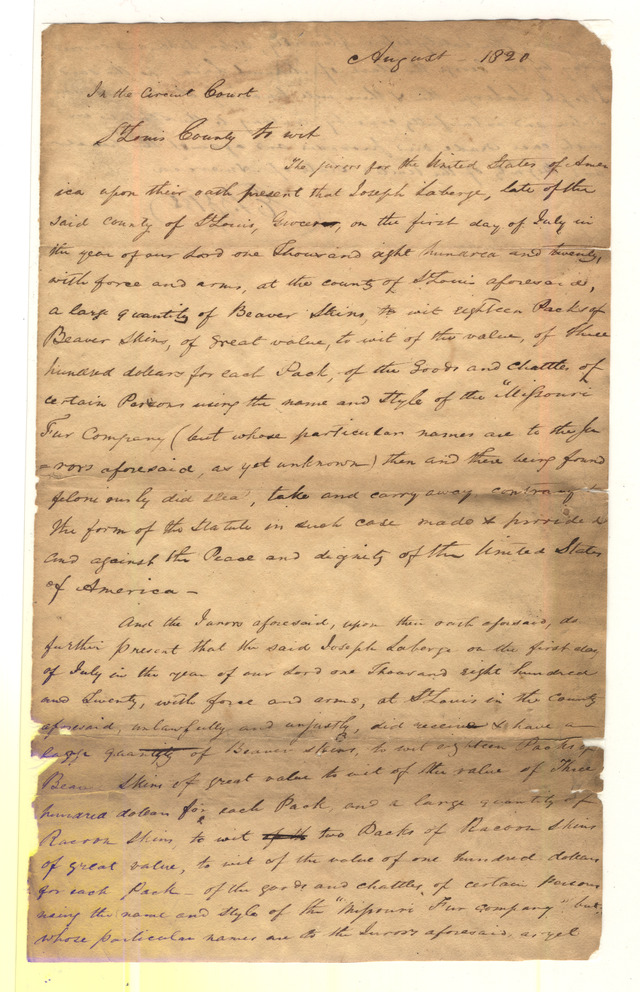 August - 1820
In the Circuit Court
St Louis County to wit
The jurors for the United States of Amer
ica upon their oath present that Joseph Laberge, late of the
said county of St Louis, Grocer, on the first day of July in
the year of our Lord one Thousand eight hundred and twenty,
with force and arms, at the county of St Louis aforesaid,
a large quantity of Beaver Skins, to wit eighteen Packs of
Beaver Skins, of great value, to wit of the value, of three
hundred dollars for each Pack, of the Goods and chattles of
certain Persons using the name and Style of the "Missouri
Fur Company (but whose particular names are to the Ju
=rors aforesaid, as yet unknown) then and there being found
feloniously did steal, take and carry away contrary to
the form of the Statute in such case made & provided
and against the Peace and dignity of the United States
of America -
And the Jurors aforesaid, upon their oath aforsaid, do
further present that the said Joseph Laberge on the first day
of July in the year of our Lord one Thousand eight hundred
and Twenty, with force and arms, at St Louis in the County
aforesaid, unlawfully and unjustly, did receive & have a
large quantity of Beaver skins, to wit eighteen Packs of
Beaver Skins of great value to wit of the value of Three
hundred dollars for each Pack, and a large quantity of
Racoon Skins, to wit two Packs of Racoon Skins
of great value, to wit of the value of one hundred dollars
for each Pack - of the goods and chattles, of certain Persons
using the name and style of the "Missouri Fur Company" but
whose particular names are to the Jurors aforesaid, as yet